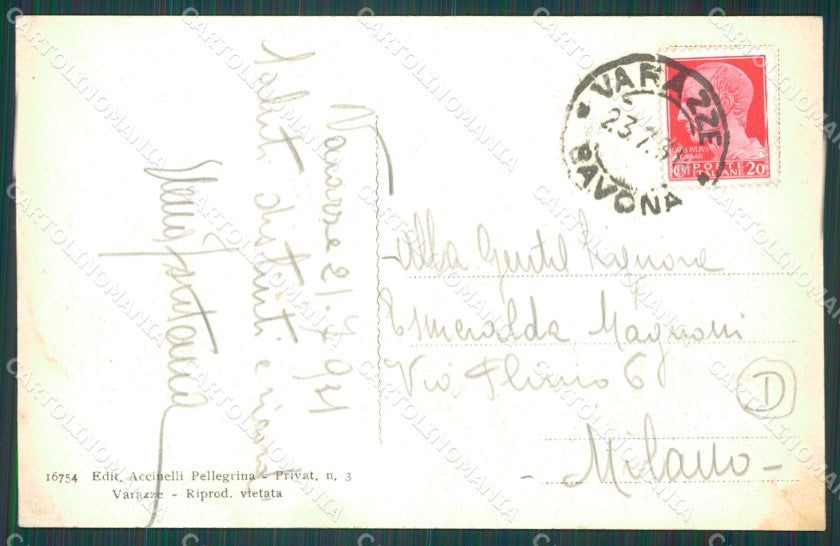 Varazze 21.7.931
Saluti distinti e
Fontana
VARAZZE
23.7.31
SAVONA
POSTE
ITALIANE
CENT 20
Alla Gentil Signora
Esmeralda Magnoni
Via Plinio 6
D
- Milano -
16754 Edit. Accinelli Pellegrina - Privat. n. 3
Varazze - Riprod. vietata
CARTOLINOMANIA